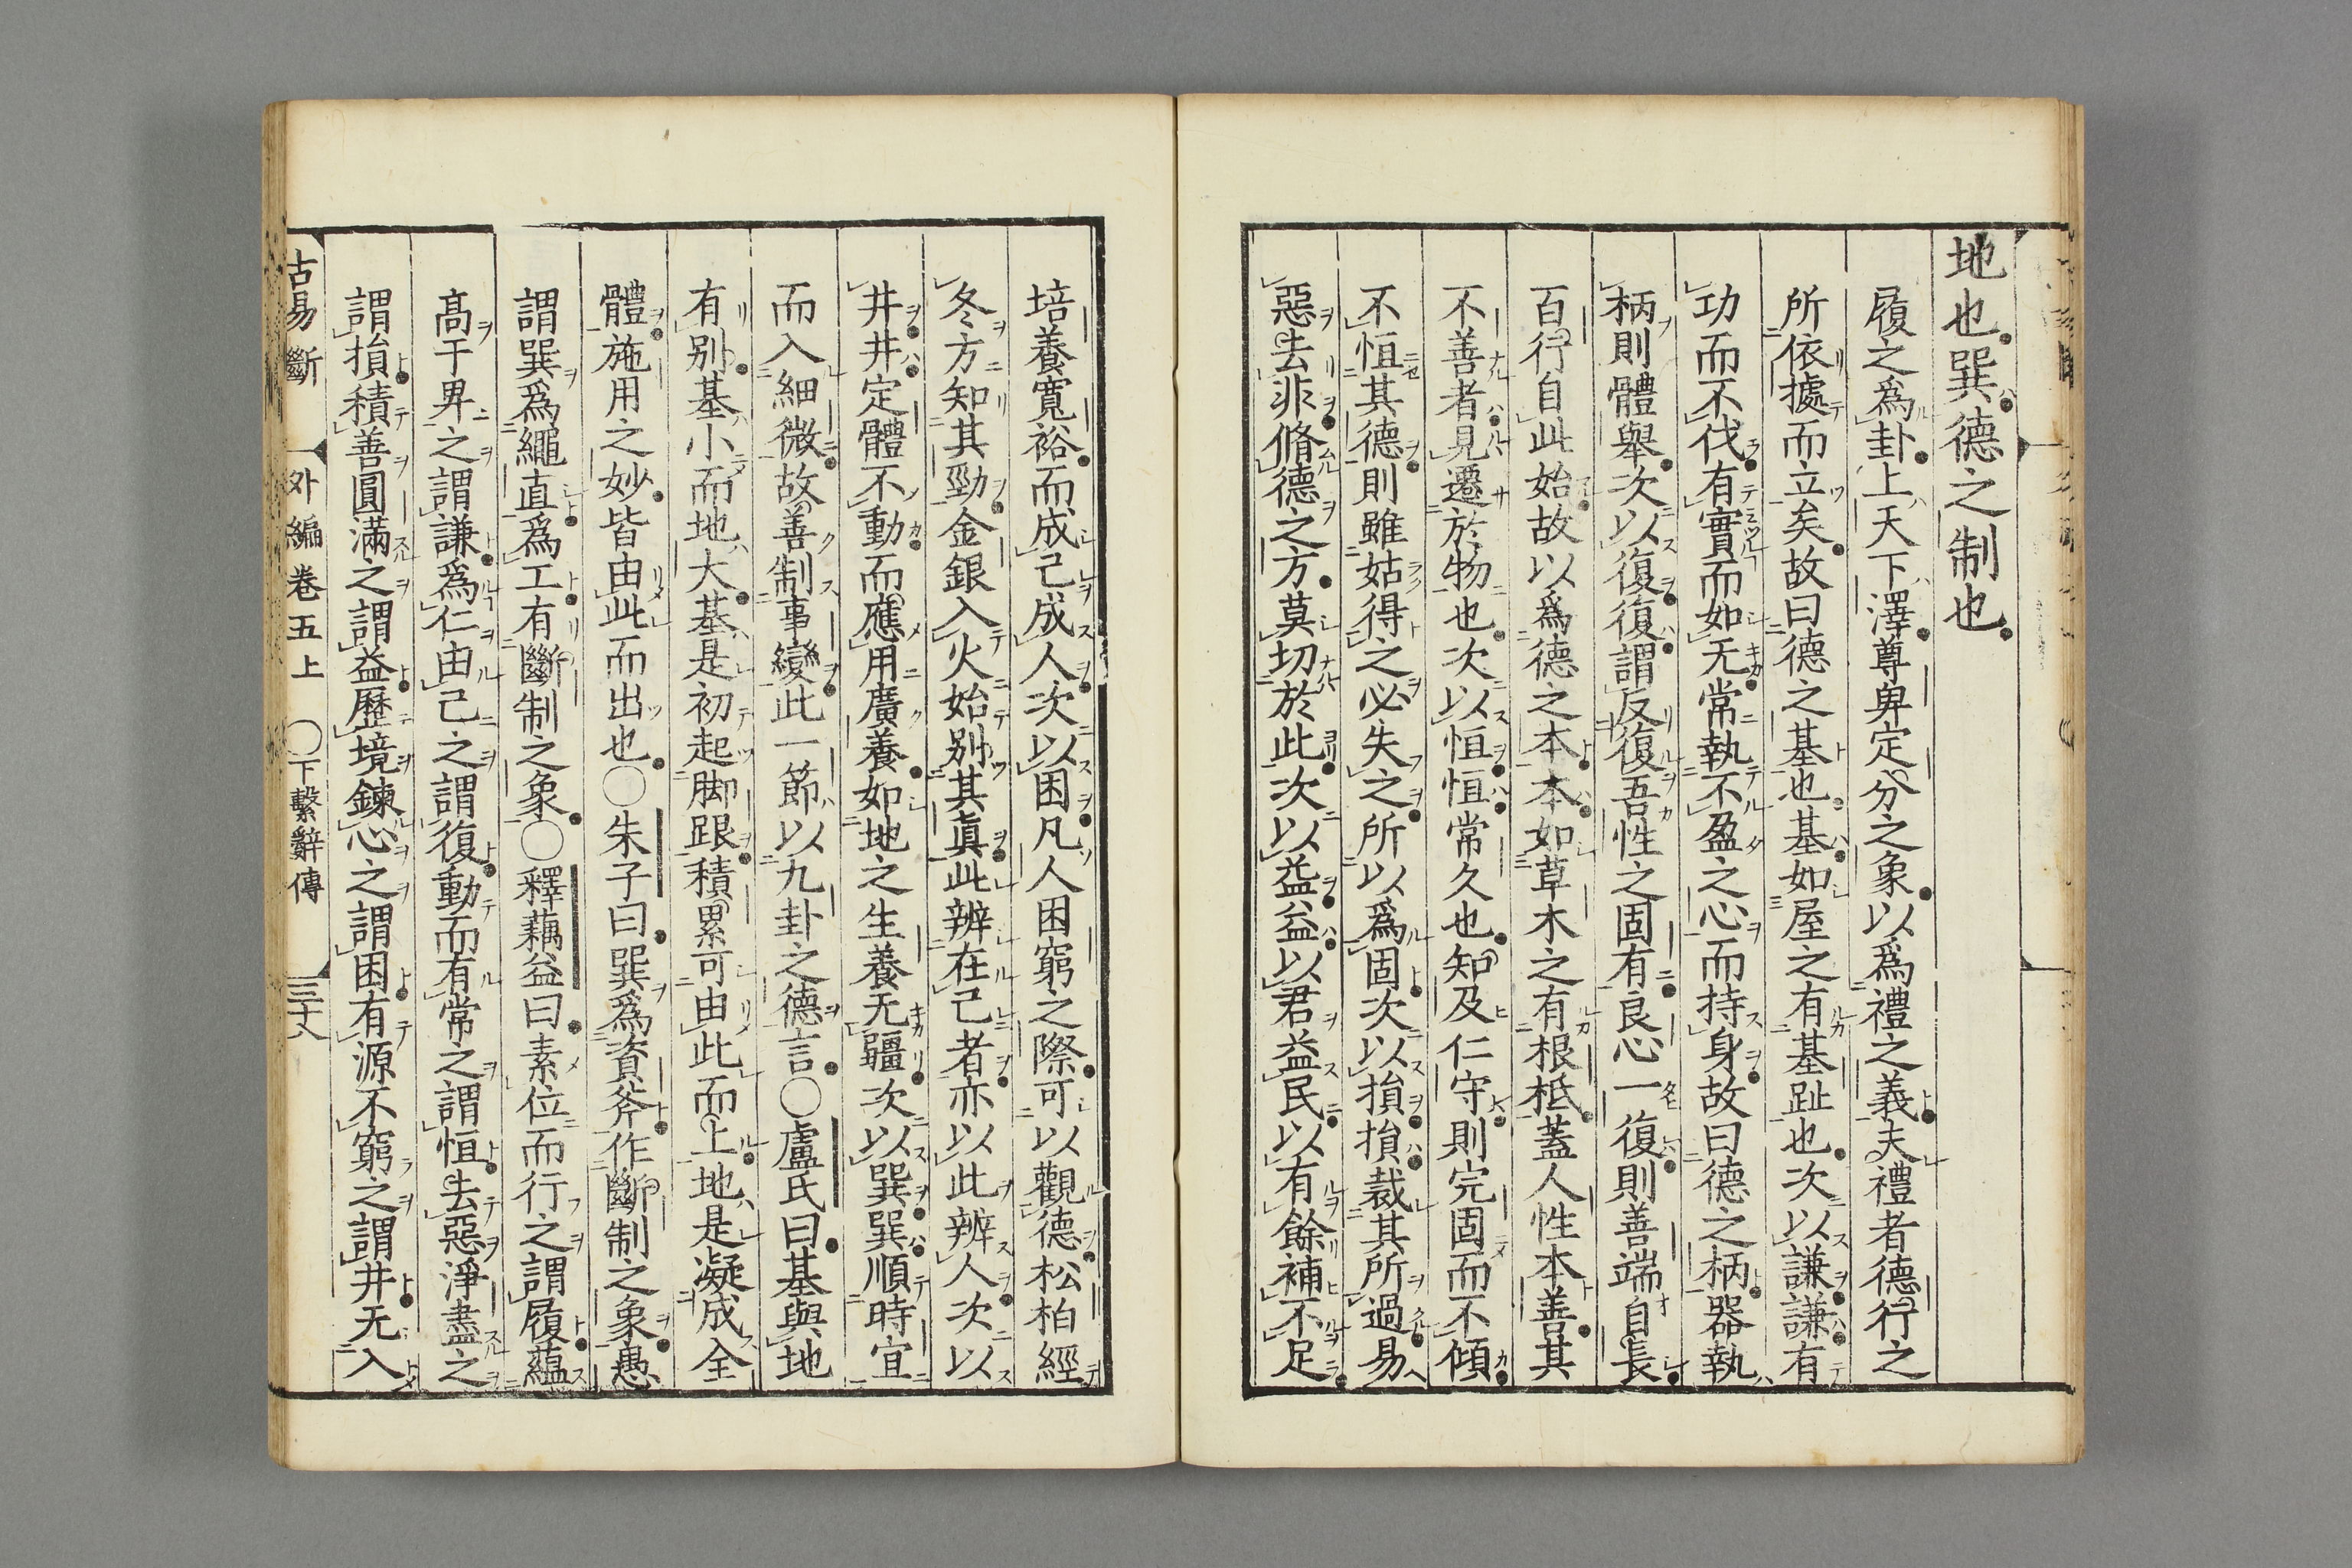 地也巽德之制也
履之爲卦上天下澤尊卑定分之象以爲禮之義夫禮者德行之
所依據而立矣故曰德之基也基如屋之有基趾也次以謙謙有
功而不伐有實而如无常執不盈之心而持身故曰德之柄器執
柄則體舉次以復復謂反復吾性之固有良心一復則善端自長
百行自此始故以爲德之本本如草木之有根柢蓋人性本善其
不善者見遷於物也次以恒恒常久也知及仁守則完固而不傾
不恒其德則雖姑得之必失之所以爲固次以損損裁其所過易
惡去非脩德之方莫切於此次以益益以君益民以有餘補不足
培養寬裕而成己成人次以困凡人困窮之際可以觀德松柏經
冬方知其勁金銀入火始別其眞此辨在己者亦以此辨人次以
井井定體不動而應用廣養如地之生養无疆次以巽巽順時宜
而入細微故善制事變此一節以九卦之德言○盧氏曰基與地
有別基小而地大基是初起脚跟積累可由此而上地是凝成全
體施用之妙皆由此而出也○朱子曰巽爲資斧作斷制之象愚
謂巽爲繩直爲工有斷制之象○釋藕益曰素位而行之謂履蘊
高于卑之謂謙爲仁由己之謂復動而有常之謂恒去惡淨盡之
謂損積善圓滿之謂益歷境鍊心之謂困有源不窮之謂井无入
古易斷 外編卷五上 ○下繫辭傳 三十八